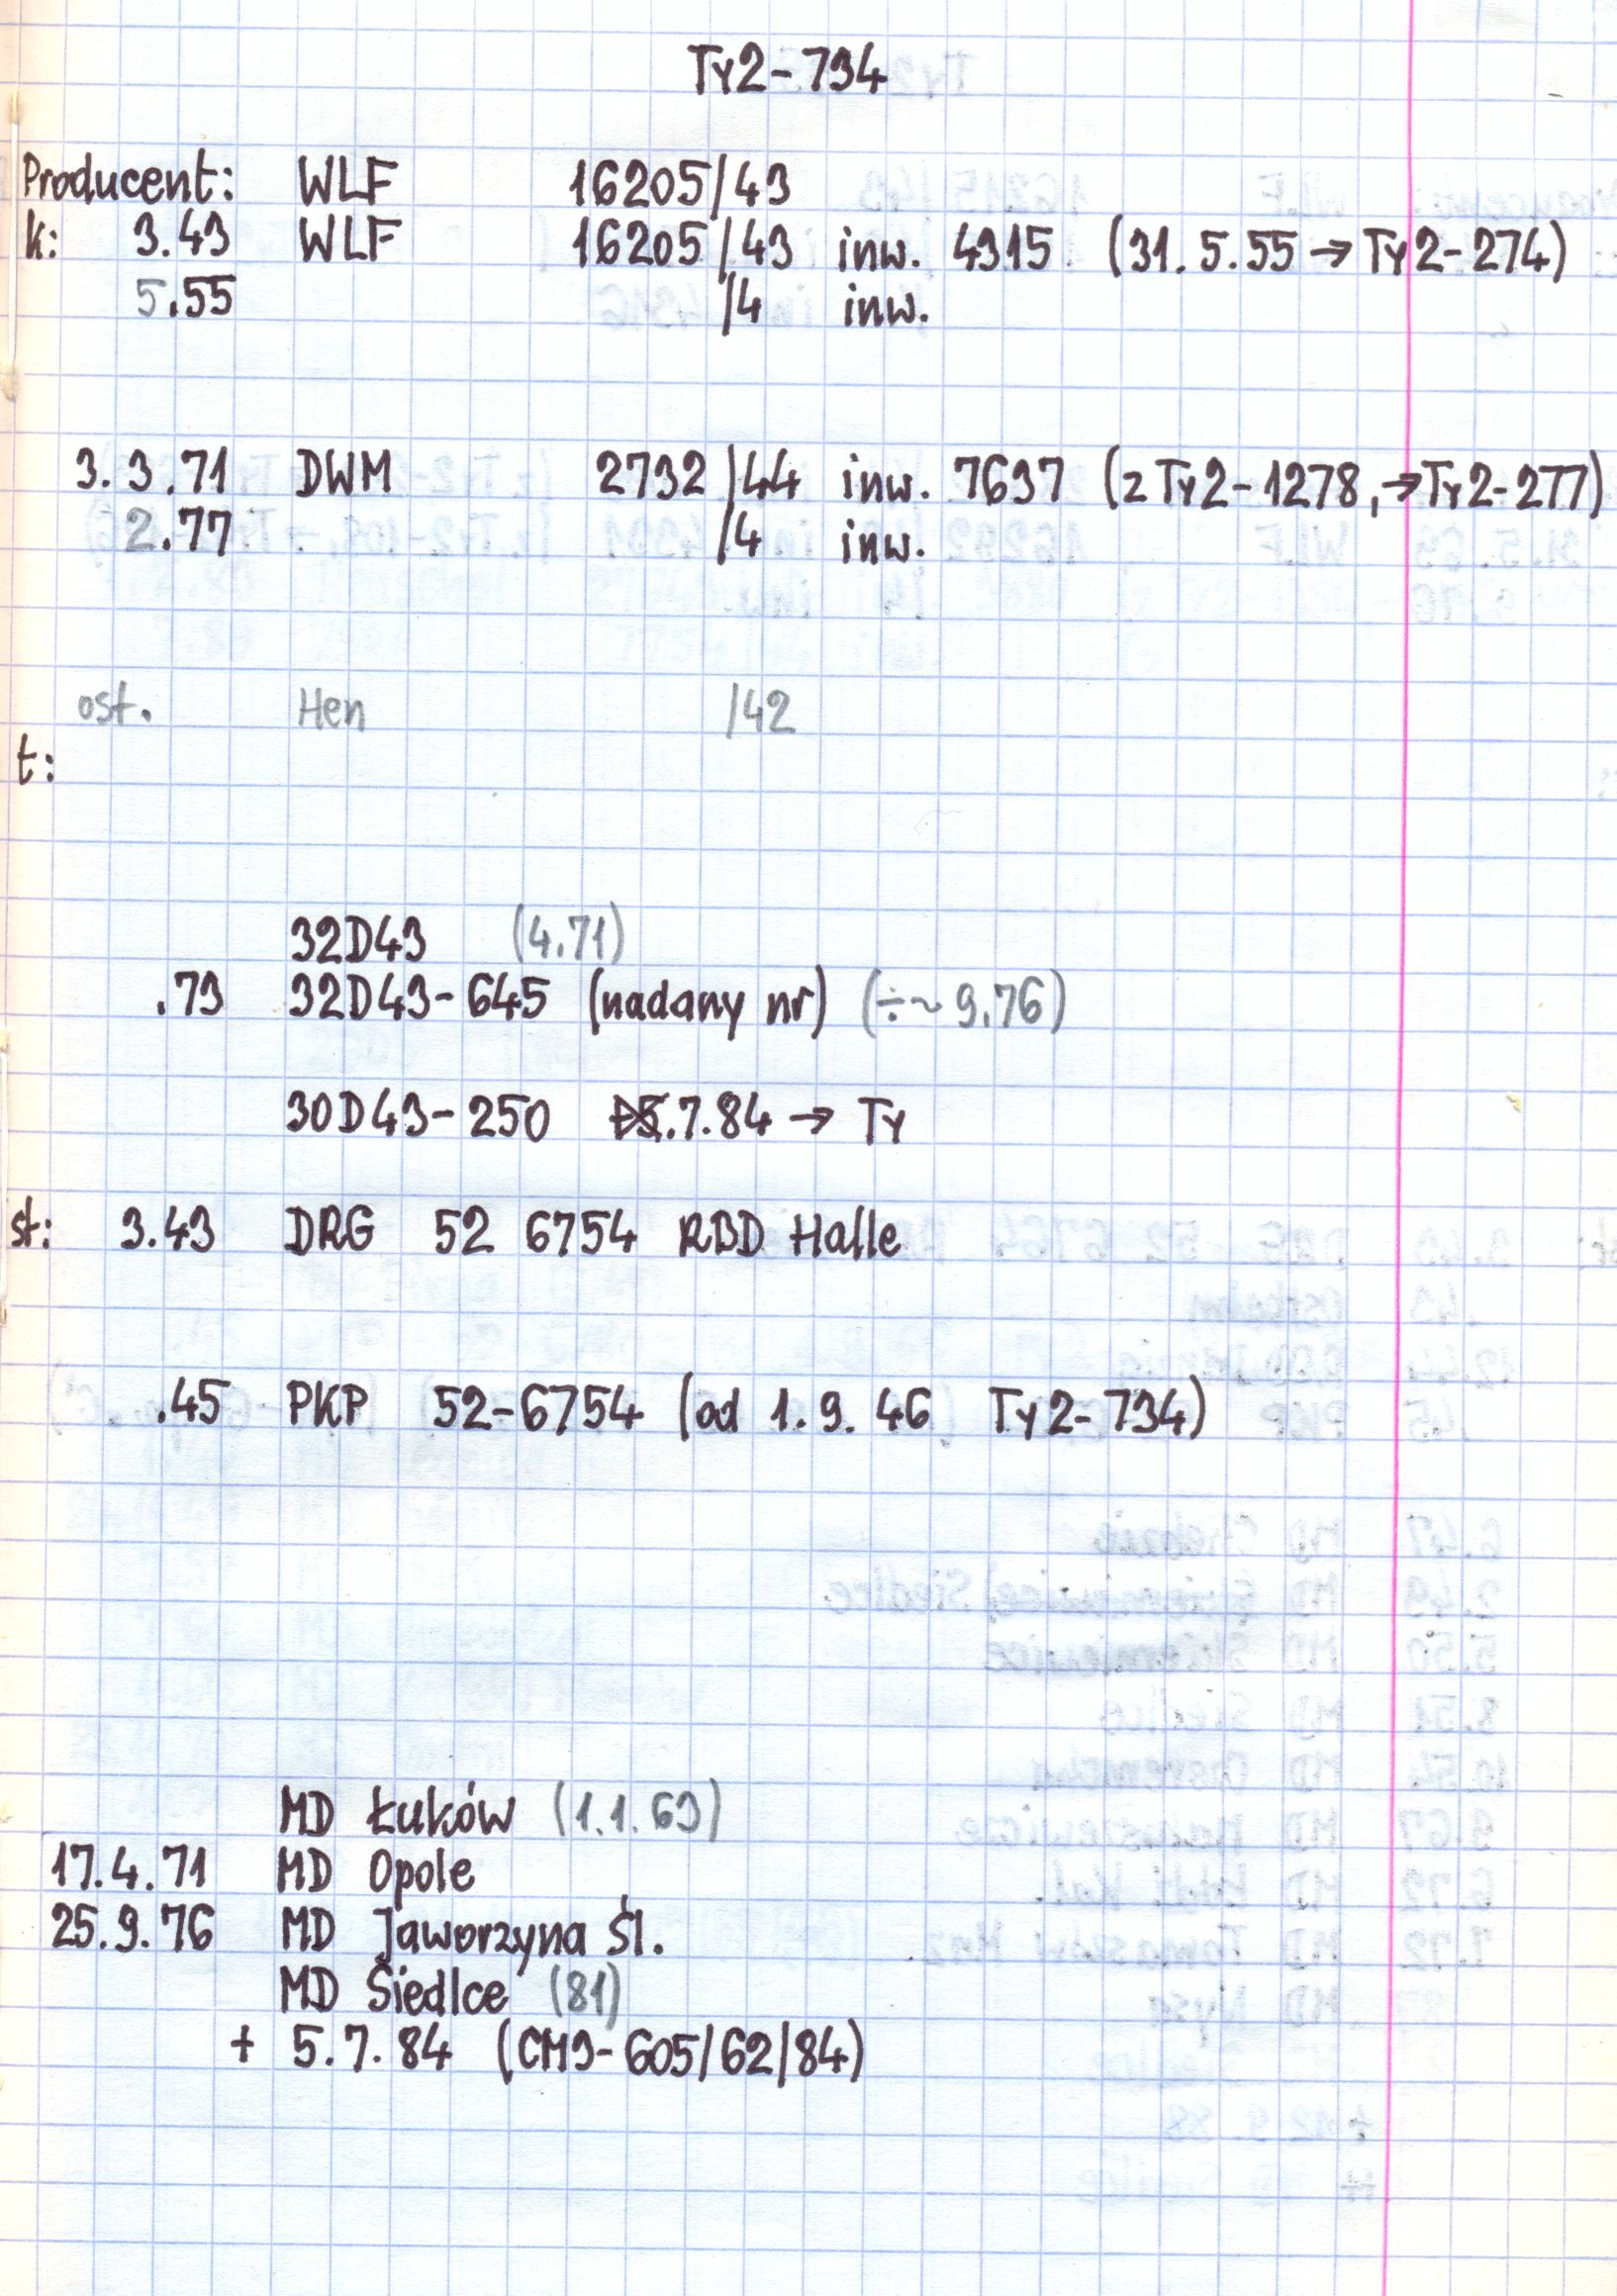 Ty2-734
Producent: WLF 16205/43
k: 3.43 WLF 16205/43 inw. 4315 (31.5.55 → Ty2-274)
5.55 /4 inw.
3.3.71 DWM 2732/44 inw. 7637 (z Ty2-1278, → Ty2-277)
2.77 /4 inw.
ost. Hen /42
t:
32D43 (4.71)
.73 32D43-645 (nadany nr) (÷~ 9.76)
30D43-250 .7.84 → Ty
st: 3.43 DRG 52 6754 RBD Halle
.45 PKP 52-6754 (od 1.9.46 Ty2-734)
MD Łuków (1.1.69)
17.4.71 MD Opole
25.9.76 MD Jaworzyna Śl.
MD Siedlce (81)
+ 5.7.84 (CM9-605/62/84)